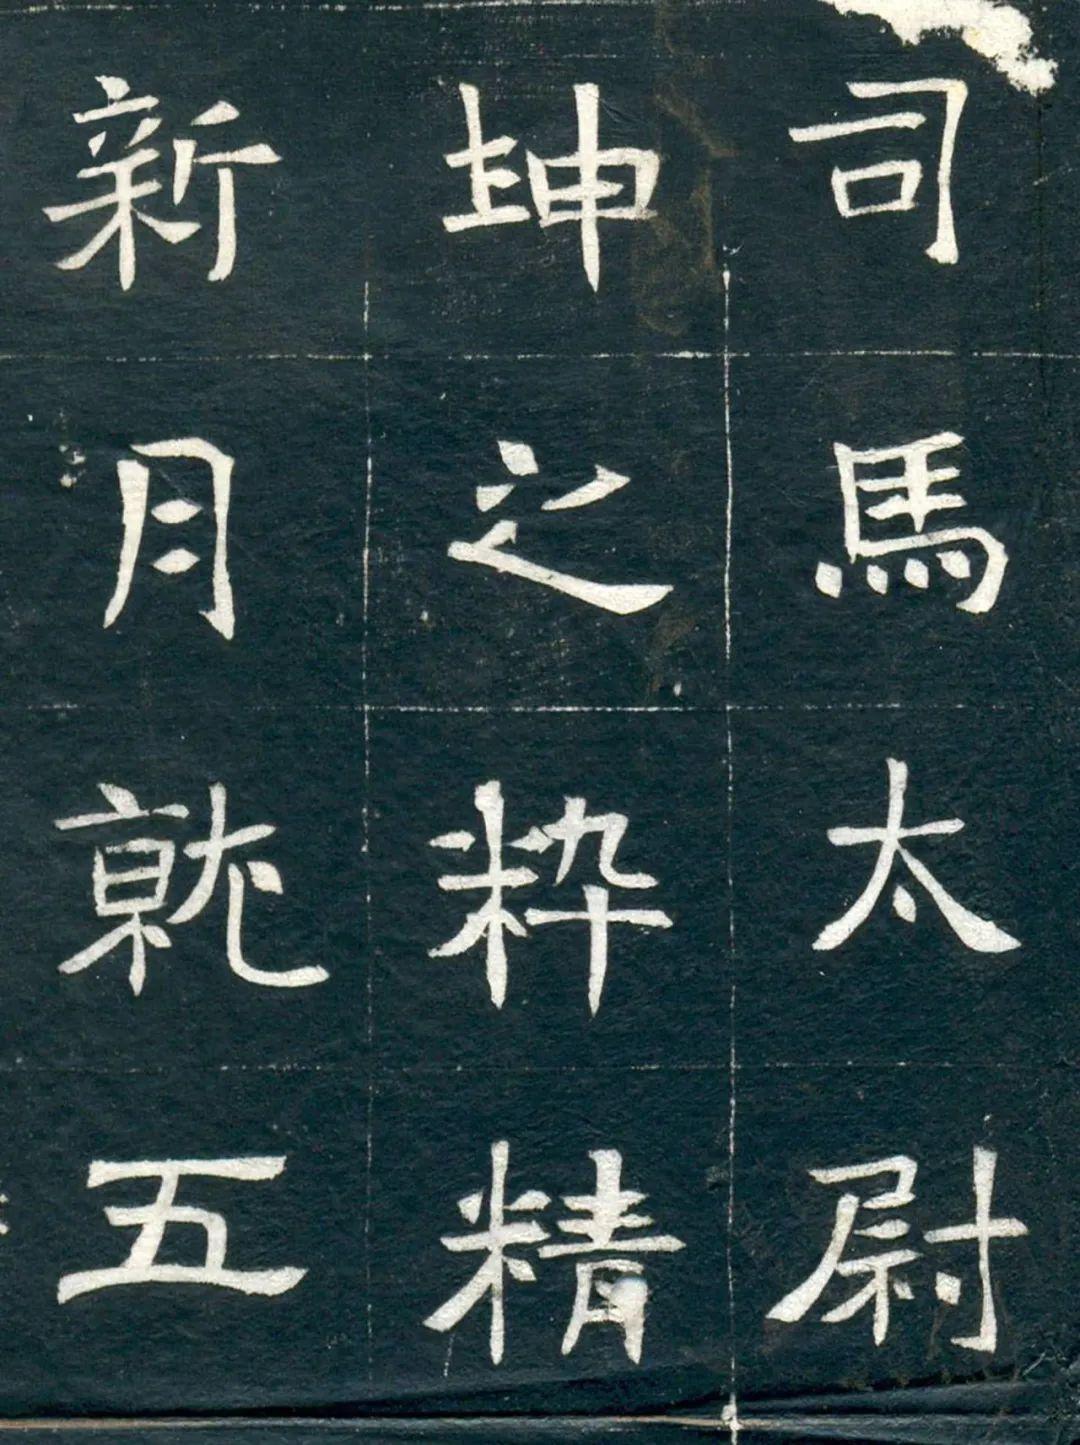 司馬太尉
坤之粹精
新月就五